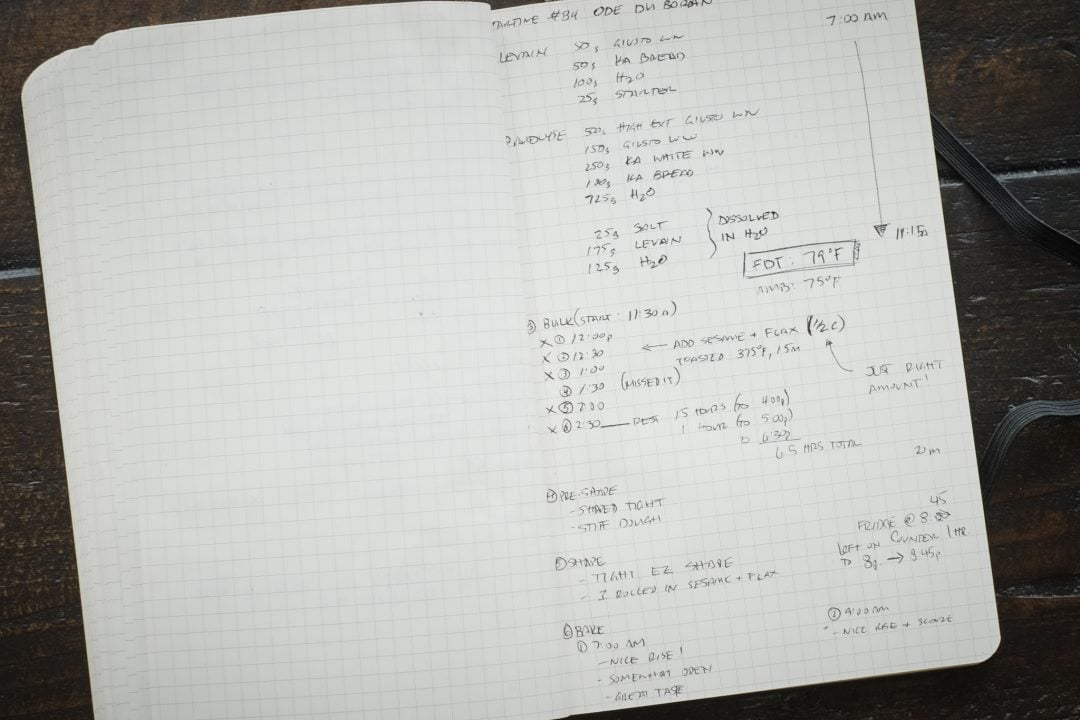 TARTINE #34 ODE DU BORDAN
7:00 AM
LEVAIN 50g GIUSTO WW
50g KA BREAD
100g H2O
25g STARTER
500g HIGH EXT GIUSTO WW
150g GIUSTO WW
250g KA WHITE WW
100g KA BREAD
725g H2O
25g SALT
175g LEVAIN
125g H2O
DISSOLVED
IN H2O
11:15a
FDT: 79°F
AMB: 75°F
③ BULK (START: 11:30a)
X ① 12:00p
X ② 12:30
X ③ 1:00
④ 1:30 (MISSED IT)
X ⑤ 2:00
X ⑥ 2:30 — REST 1.5 HOURS (to 400p)
1 HOUR (to 500p)
6:30p
6.5 HRS TOTAL
← ADD SESAME + FLAX (1/2 C)
TOASTED 375°F, 15m
JUST RIGHT
AMOUNT!
20m
④ PRE-SHAPE
- SHAPED TIGHT
- STIFF DOUGH
45
FRIDGE @ 8
LEFT ON COUNTER 1 HR
TO 8p → 8:45p
⑤ SHAPE
- TIGHT EZ SHAPE
- 1 ROLLED IN SESAME + FLAX
⑥ BAKE
① 7:00 AM
- NICE RISE!
- SOMEWHAT OPEN
- GREAT TASTE
② 9:00 AM
- NICE RISE + SCORE